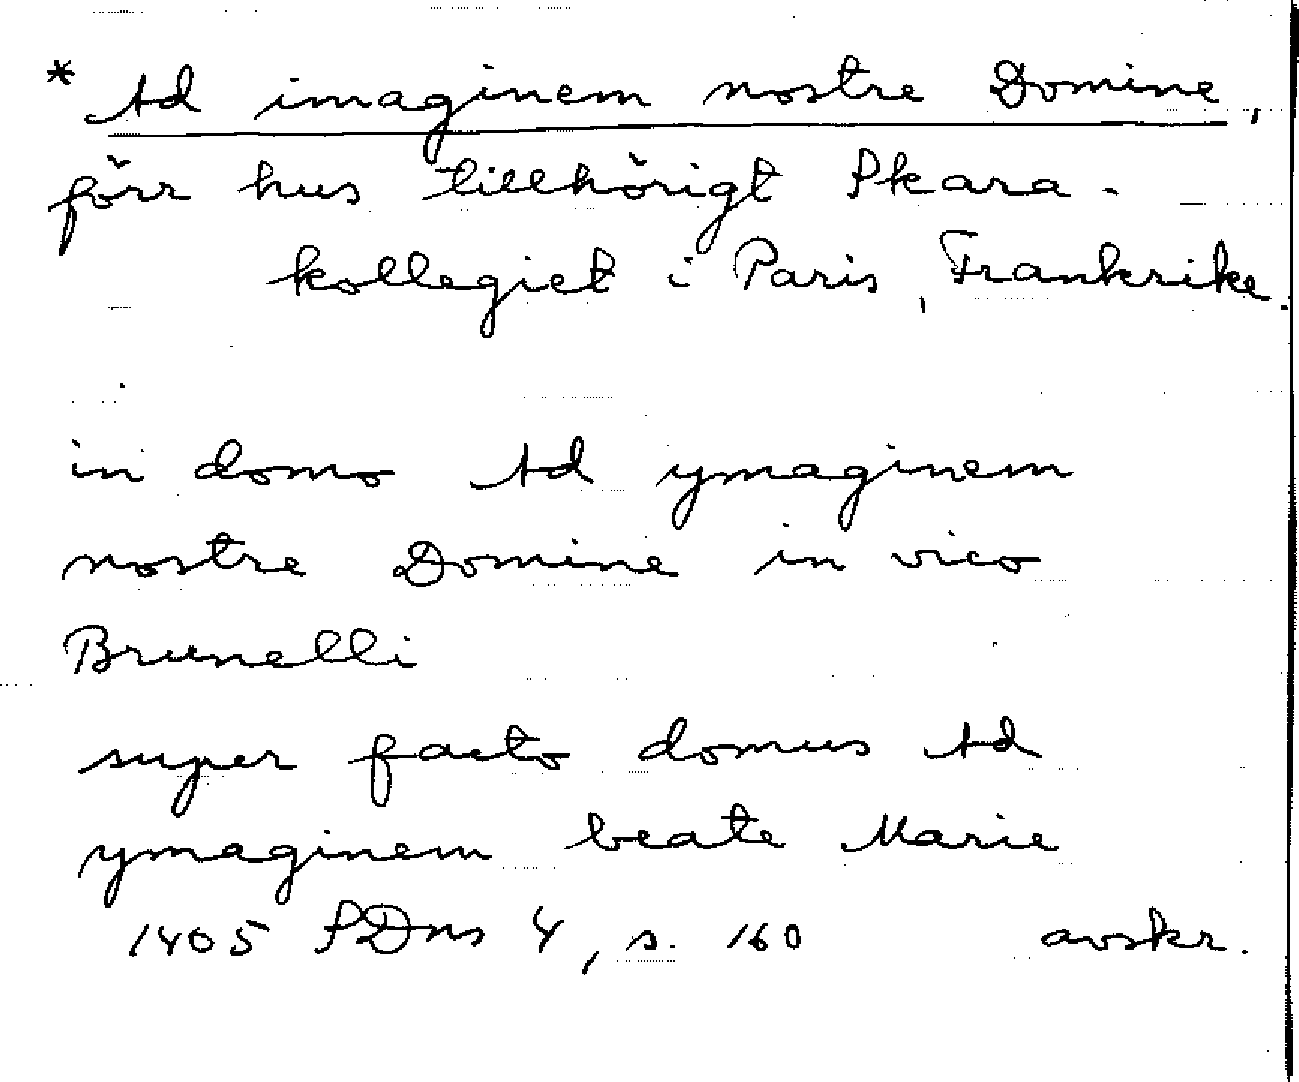 * Ad imaginem nostre Domine,
förr hus tillhörigt Skara-
kollegiet i Paris, Frankrike.
in domo Ad ymaginem
nostre Domine in vico
Brunelli
super facto domus Ad
ymaginem beate Marie
1405 SDns 4, s. 160 avskr.